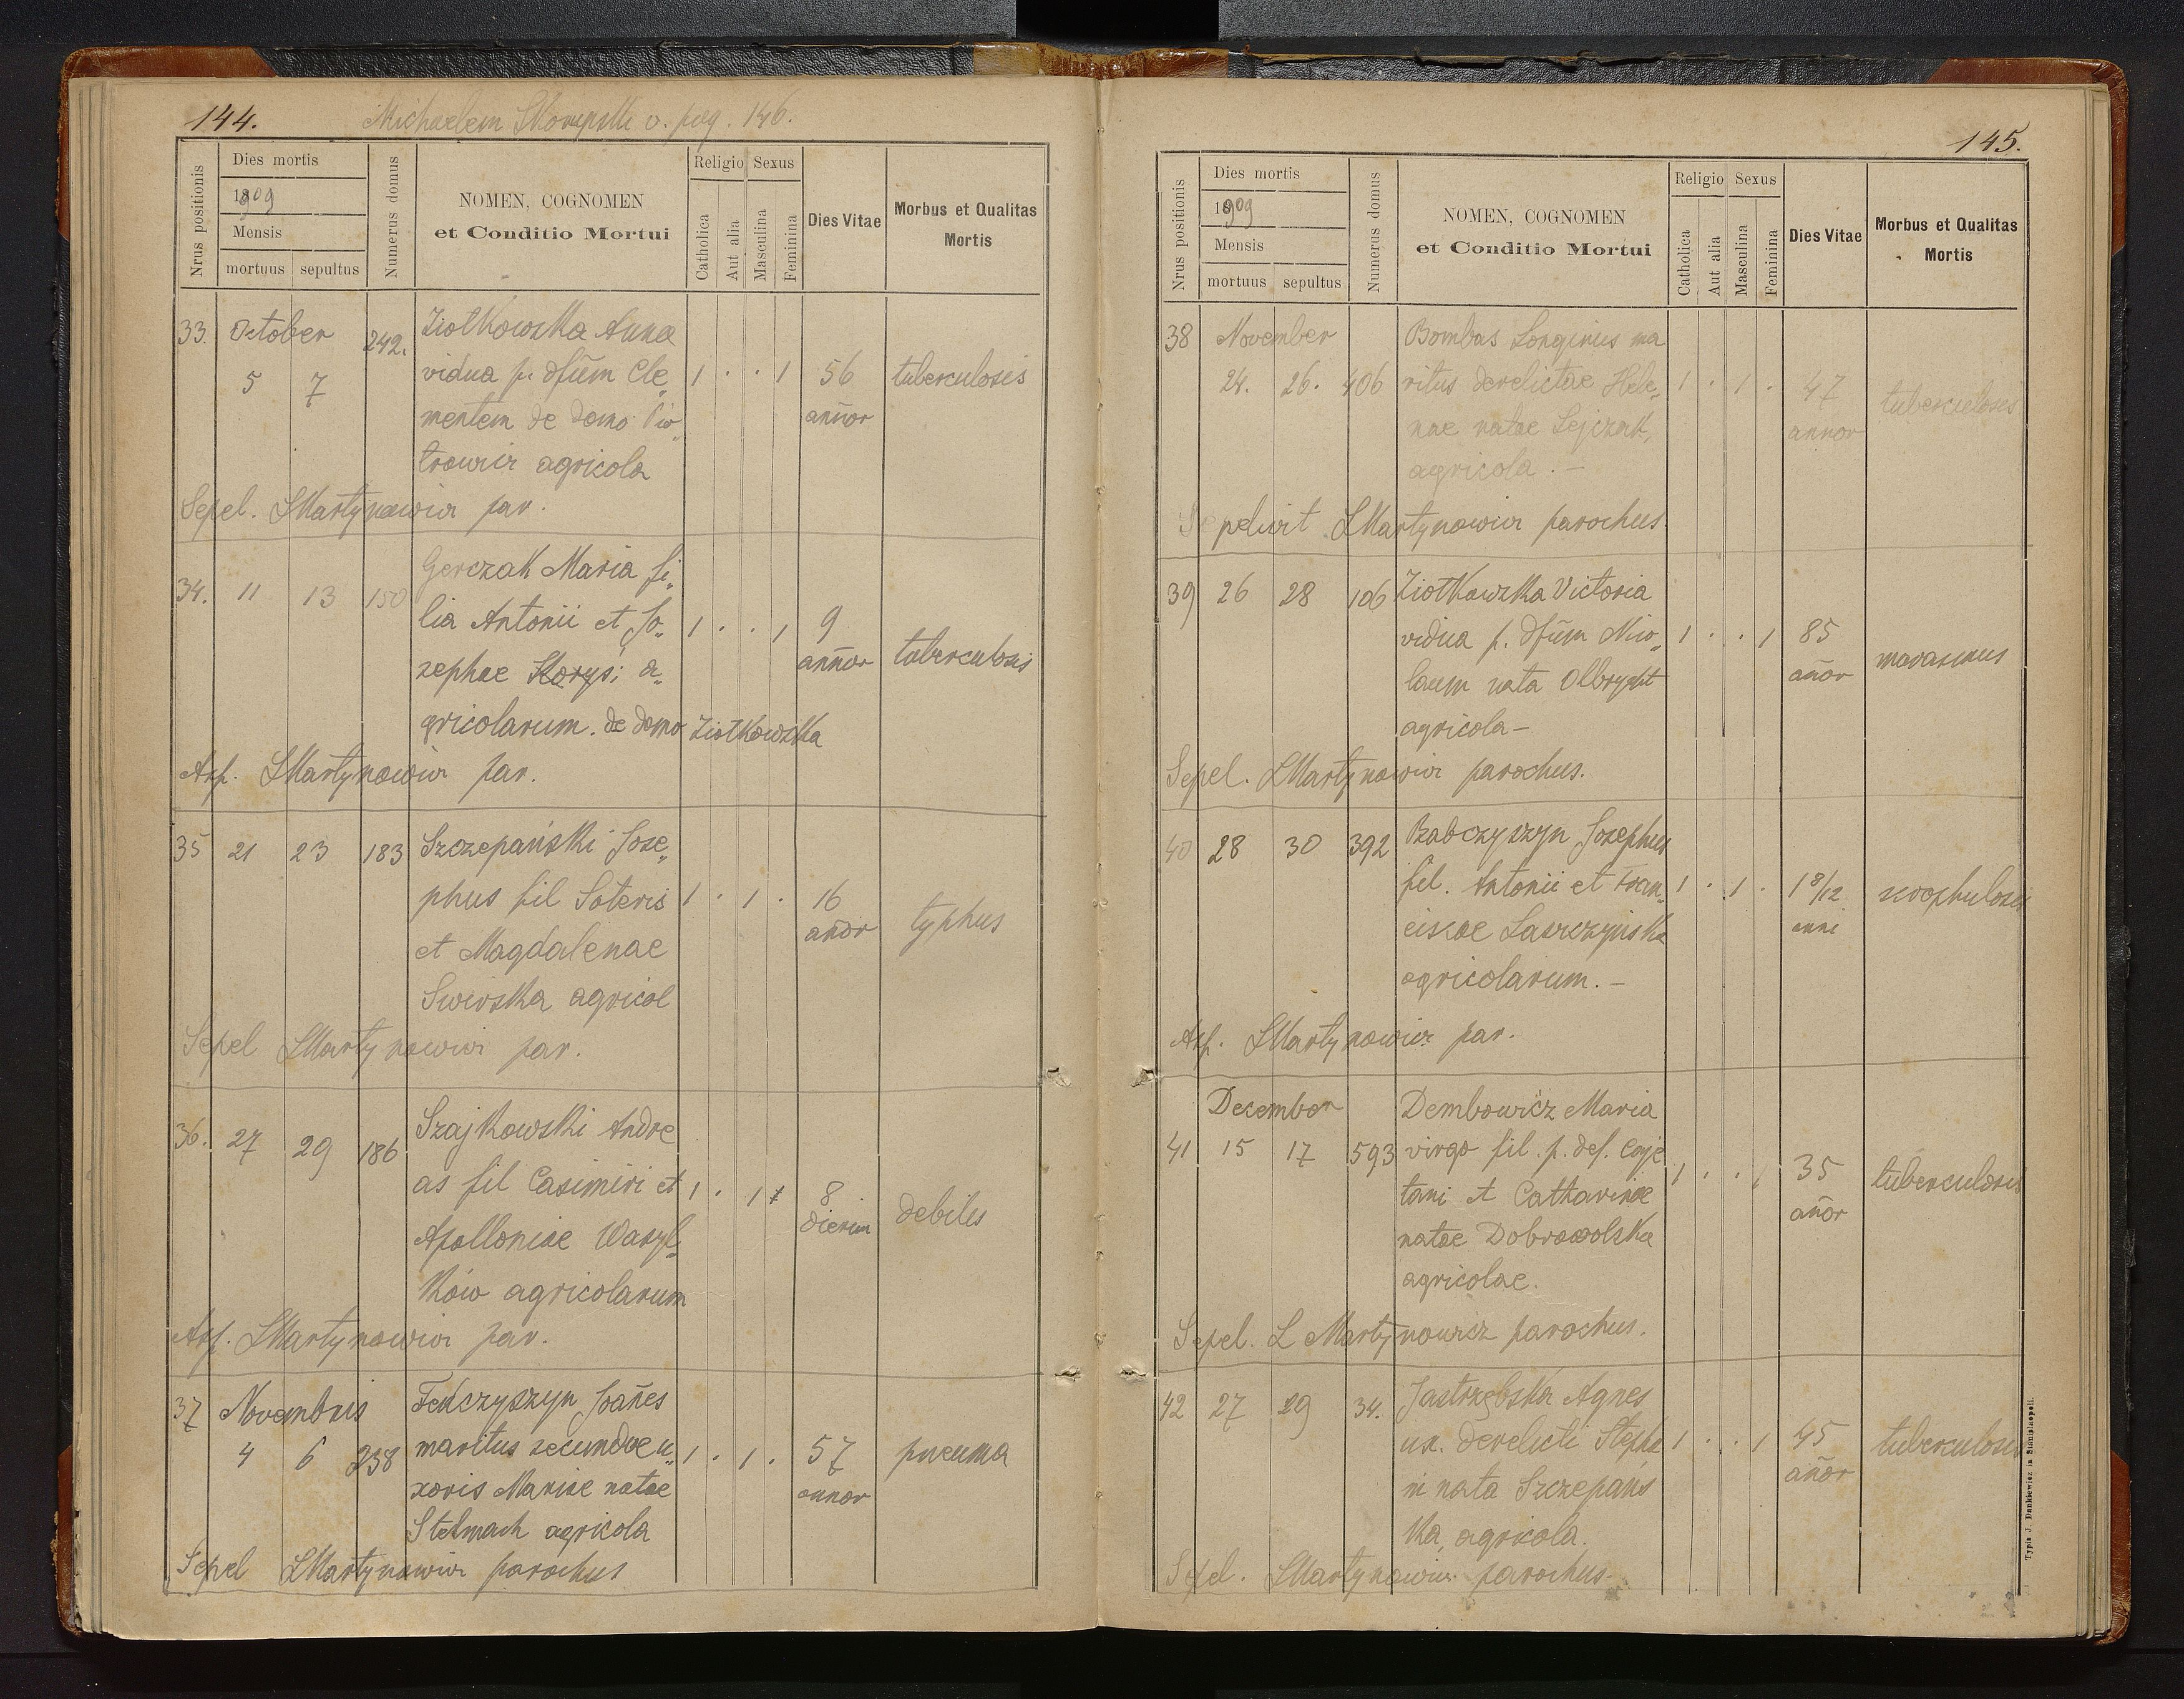 144.
Michaelem v. pag. 146.
Nrus positionis
Dies mortis
1909
Mensis
mortuus
sepultus
Numerus domus
NOMEN, COGNOMEN
et Conditio Mortui
Religio
Sexus
Catholica
Aut alia
Masculina
Feminina
Dies Vitae
Morbus et Qualitas
Mortis
33. October 242. Ziołkowska Anna
5 7 vidua p. dfūm Cle„ 1 . . 1 56 tuberculosis
mentem de domo Pio„ annor
trowicz agricola
Sepel. LMartynowicz par.
Gerczak Maria fi„
34. 11 13 150 lia Antonii et Jo„ 1 . . 1 9
zephae Korysi a„ annor tuberculosis
gricolarum. de domo Ziołkowska
Asp. LMartynowicz par.
35 21 23 183 Szczepański Jose„
phus fil Soteris 1 . 1 . 16
et Magdalenae anor typhus
Swirska agricol
Sepel LMartynowicz par.
36. 27 29 186 Szajkowski Andre
as fil Casimiri et 1 . 1 8
Apolloniae Wasyl„ dierum debilis
ków agricolarum
Asp. LMartynowicz par.
37 Novembris Fedczyszyn Joañes
4 6 238 maritus secundae u„ 1 . 1 . 57 pneuma
xoris Mariae natae annor
Stelmach agricola
Sepel LMartynowicz parochus
145.
Nrus positionis
Dies mortis
1909
Mensis
mortuus
sepultus
Numerus domus
NOMEN, COGNOMEN
et Conditio Mortui
Religio
Sexus
Catholica
Aut alia
Masculina
Feminina
Dies Vitae
Morbus et Qualitas
Mortis
38 November Bombas Longinus ma
24. 26. 406 ritus derelictae Hele„ 1 . 1 . 47 tuberculosis
nae natae Lejczak, annor
agricola. –
Sepelivit LMartynowicz parochus.
39 26 28 106 Ziołkowska Victoria
vidua p. dfūm Nico„ 1 . . 1 85
laum nata Olbrycht añor marasmus
agricola –
Sepel. LMartynowicz parochus.
40 28 30 392 Babczyszyn Josephus
fil. Antonii et Fran„ 1 . 1 . 1 8/12 scrophulosis
ciscae Laszczyńska anni
agricolarum. –
Asp. LMartynowicz par.
December Dembowicz Maria
41 15 17 593 virgo fil. p. def. Caje 1 . . 1 35 tuberculosis
tani et Catharinae añor
natae Dobrowolska
agricolae.
Sepel. L Martynowicz parochus.
42 27 29 34. Jastrzębska Agnes
ux. derelicti Stepha 1 . . 1 45 tuberculosis
ni nata Szczepańs añor
ka, agricola.
Sepel. LMartynowicz parochus.
Typis J. Dankiewicz in Stanislaopoli.